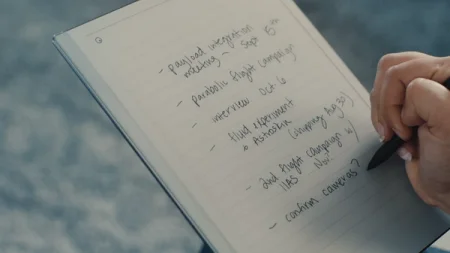 - payload integration
meeting - Sept 15th
- parabolic flight campaign
- interview Oct 6
- fluid experiment
& AstroSkin (shipping Aug 30)
- 2nd flight campaign
IIAS Nov
- confirm cameras?